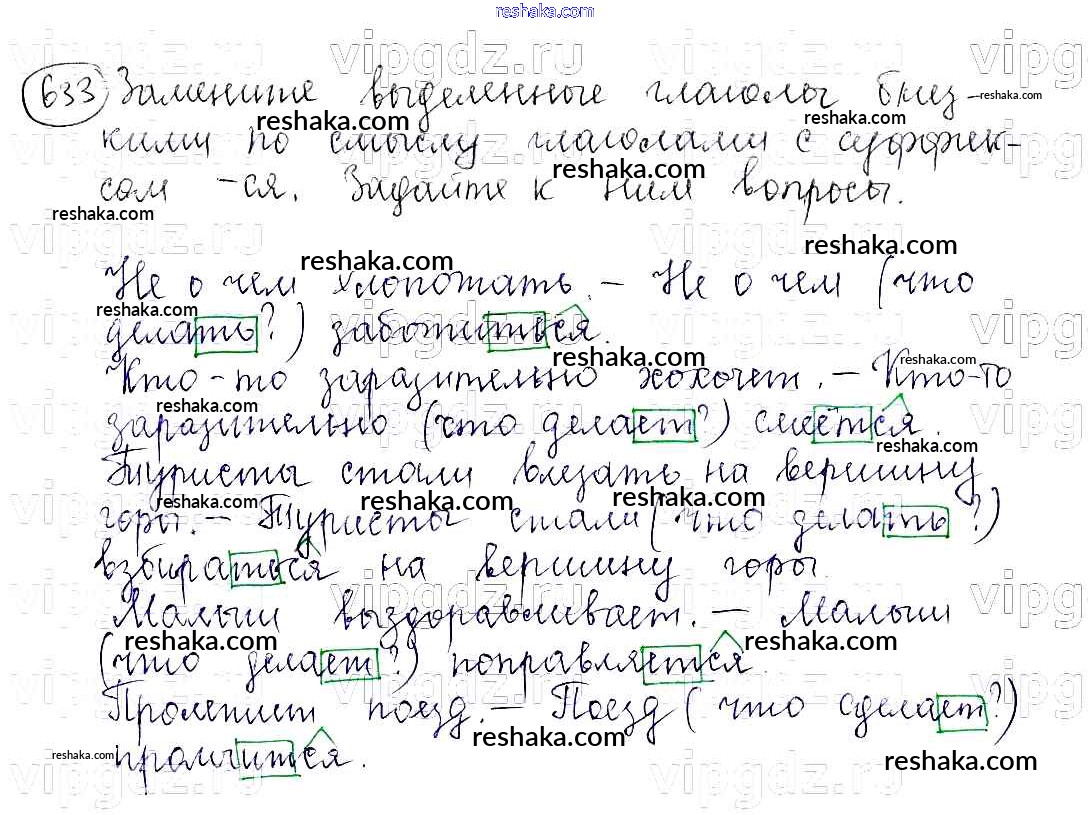 reshaka.com
633 Замените выделенные глаголы близ-
кими по смыслу глаголами с суффик-
сом -ся. Задайте к ним вопросы.
Не о чем хлопотать. – Не о чем (что
делать?) заботиться.
Кто-то заразительно хохочет. – Кто-то
заразительно (что делает?) смеётся.
Туристы стали влезать на вершину
горы. – Туристы стали (что делать?)
взбираться на вершину горы.
Малыш выздоравливает. – Малыш
(что делает?) поправляется.
Пролетит поезд. – Поезд (что сделает?)
промчится.